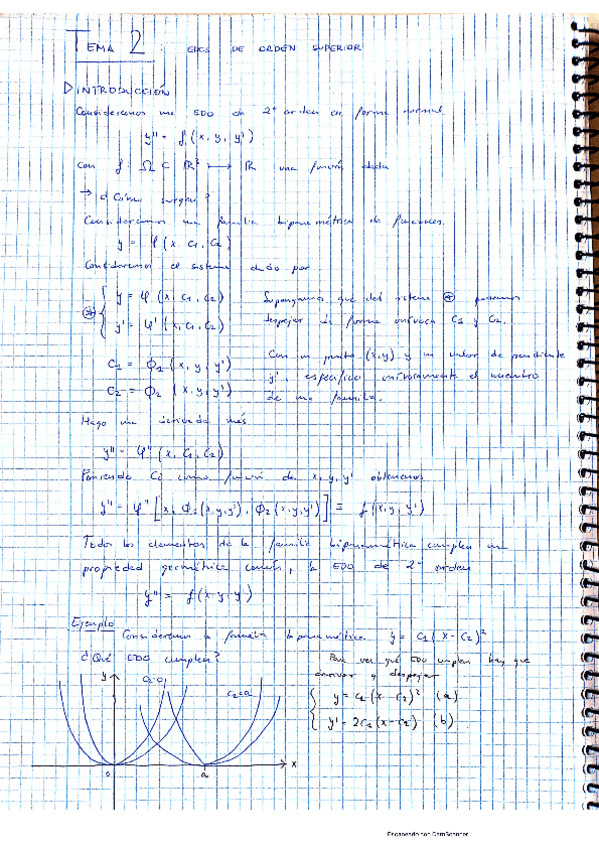 TEMA 2: EDOS DE ORDEN SUPERIOR
▷ INTRODUCCIÓN
Consideremos una EDO de 2º orden en forma normal
y'' = f(x, y, y')
con f: Ω ⊂ ℝ³ ⟼ ℝ una función dada
→ ¿Cómo surgen?
Consideramos una familia biparamétrica de funciones.
y = φ(x, c₁, c₂)
Consideremos el sistema dado por
⊛ { y = φ(x, c₁, c₂)
y' = φ'(x, c₁, c₂)
Supongamos que del sistema ⊛ podemos
despejar de forma unívoca c₁ y c₂.
c₁ = ϕ₁(x, y, y')
c₂ = ϕ₂(x, y, y')
Con un punto (x, y) y un valor de pendiente
y', especifico unívocamente el miembro
de una familia.
Hago una derivada más
y'' = φ''(x, c₁, c₂)
Poniendo Ci como función de x, y, y' obtenemos
y'' = φ''[x, ϕ₁(x, y, y'), ϕ₂(x, y, y')] = f(x, y, y')
Todos los elementos de la familia biparamétrica cumplen una
propiedad geométrica común, la EDO de 2º orden
y'' = f(x, y, y')
Ejemplo
Consideremos la familia biparamétrica y = c₁(x - c₂)²
¿Qué EDO cumplen?
Para ver qué EDO cumplen hay que
derivar y despejar
{ y = c₁(x - c₂)² (a)
y' = 2c₁(x - c₂) (b)
y
c₂=0
c₂=a
0
a
x
Escaneado con CamScanner